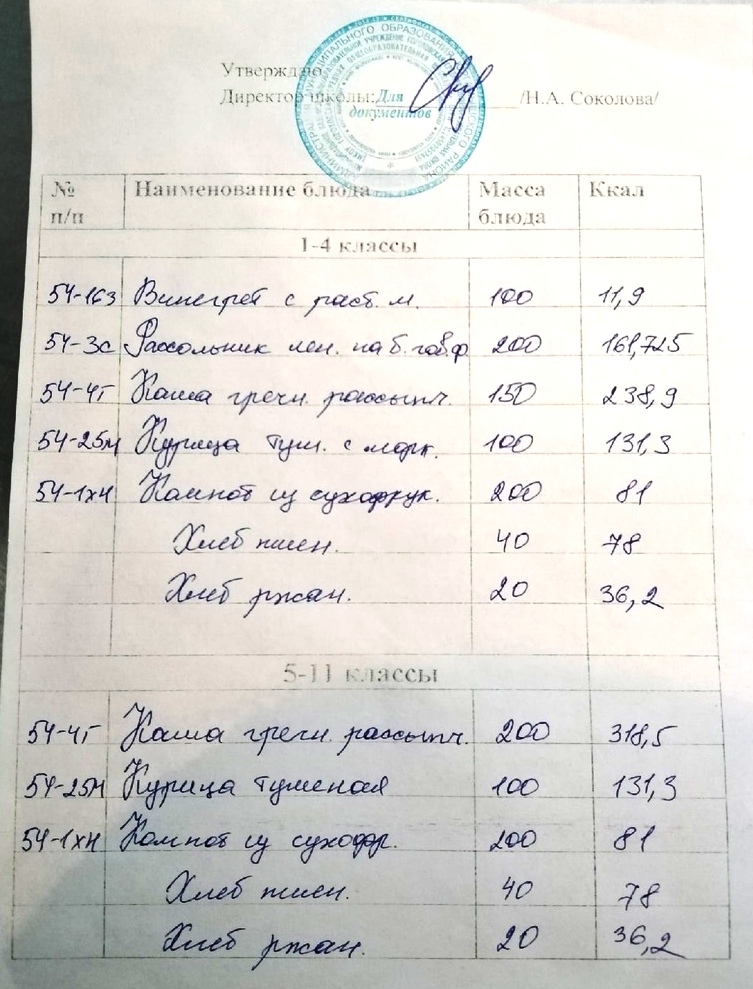 Утверждаю
Директор школы: /Н.А. Соколова/
Для
документов
№ п/п Наименование блюда Масса блюда Ккал
1-4 классы
54-16з Винегрет с раст. м. 100 11,9
54-3с Рассольник лен. на б. гов.ф 200 161,725
54-4г Каша гречн. рассыпч. 150 238,9
54-25м Курица туш. с морк. 100 131,3
54-1хн Компот из сухофрук. 200 81
Хлеб пшен. 40 78
Хлеб ржан. 20 36,2
5-11 классы
54-4г Каша гречн. рассыпч. 200 318,5
54-25м Курица тушеная 100 131,3
54-1хн Компот из сухофр. 200 81
Хлеб пшен. 40 78
Хлеб ржан. 20 36,2